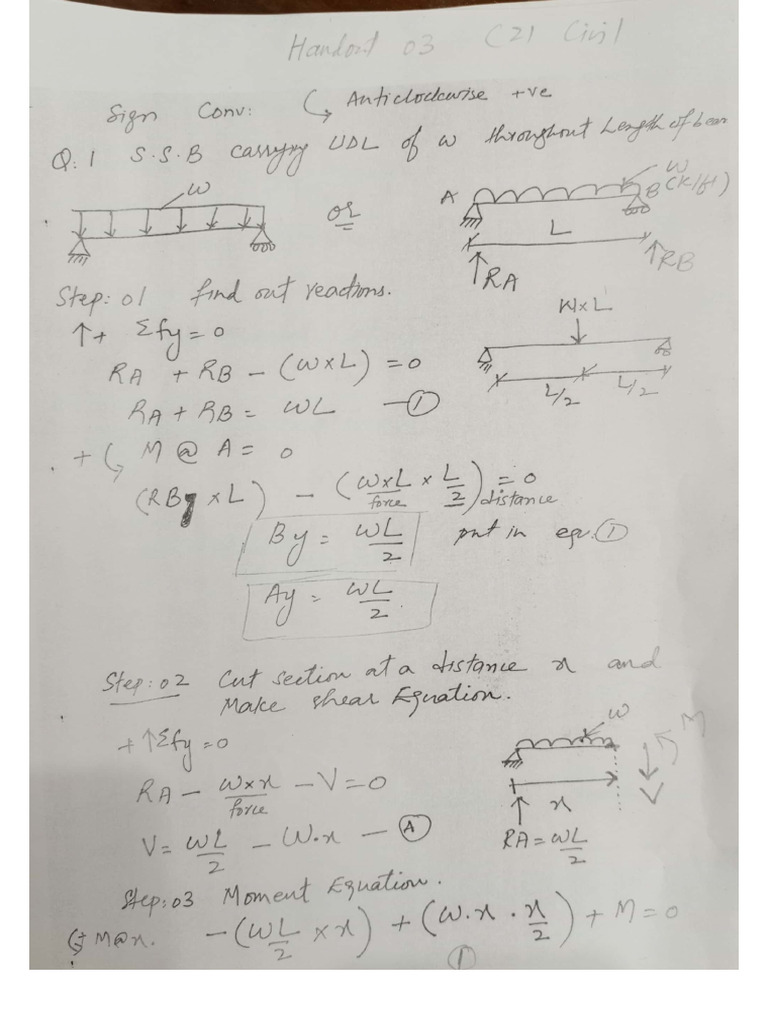 Handout 03 C21 Civil
Sign Conv: Anticlockwise +ve
Q.1 S.S.B carrying UDL of w throughout Length of beam
w
or
A
w
B (K/ft)
L
RA
RB
Step: 01 find out reactions.
↑+ Σfy = 0
RA + RB - (w×L) = 0
RA + RB = wL —①
W×L
L/2 L/2
+ M @ A = 0
(RBy × L) - (w×L × L/2) = 0
force distance
By = wL/2 put in eqn. ①
Ay = wL/2
Step: 02 Cut section at a distance x and
Make shear Equation.
+↑Σfy = 0
RA - w×x - V = 0
force
V = wL/2 - W.x — Ⓐ
w
M
V
x
RA = wL/2
Step: 03 Moment Equation.
+ M@x. -(wL/2 × x) + (w.x . x/2) + M = 0
①